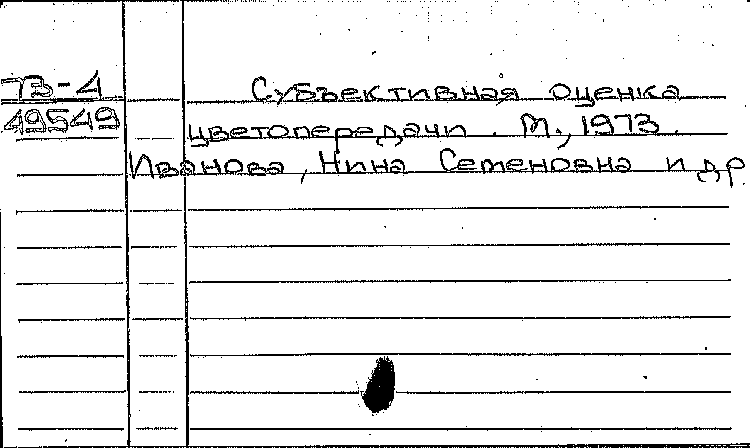 73-4 Субъективная оценка
49549 цветопередачи. М., 1973.
Иванова, Нина Семеновна и др